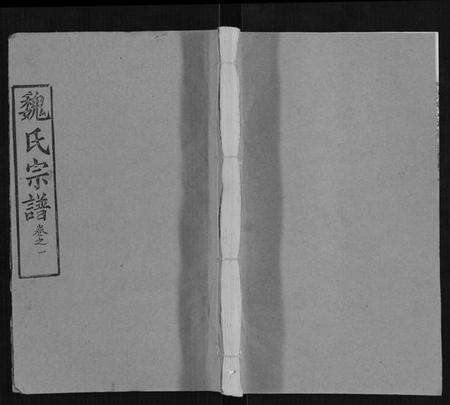 魏氏宗譜卷之一